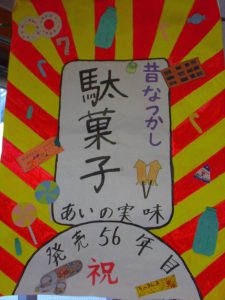 昔なつかし
駄菓子
あいの実味
発売56年目
祝